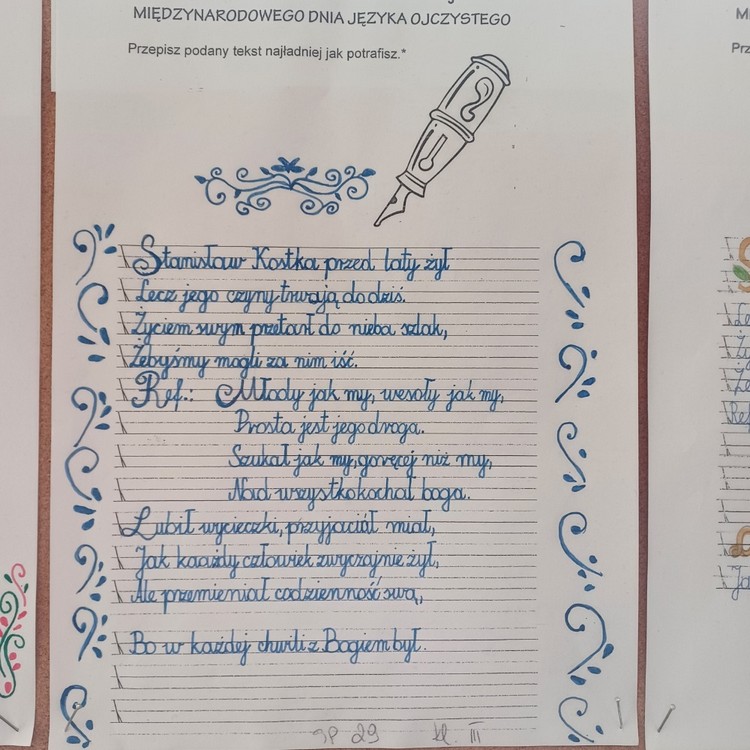 MIĘDZYNARODOWEGO DNIA JĘZYKA OJCZYSTEGO
Przepisz podany tekst najładniej jak potrafisz.*
Stanisław Kostka przed laty żył
Lecz jego czyny trwają do dziś.
Życiem swym przetarł do nieba szlak,
Żebyśmy mogli za nim iść.
Ref.: Młody jak my, wesoły jak my,
Prosta jest jego droga.
Szukał jak my, goręcej niż my,
Nad wszystko kochał boga.
Lubił wycieczki, przyjaciół miał,
Jak kaażdy człowiek zwyczajnie żył,
Ale przemieniał codzienność swą,
Bo w każdej chwili z Bogiem był.
SP 29 kl. III